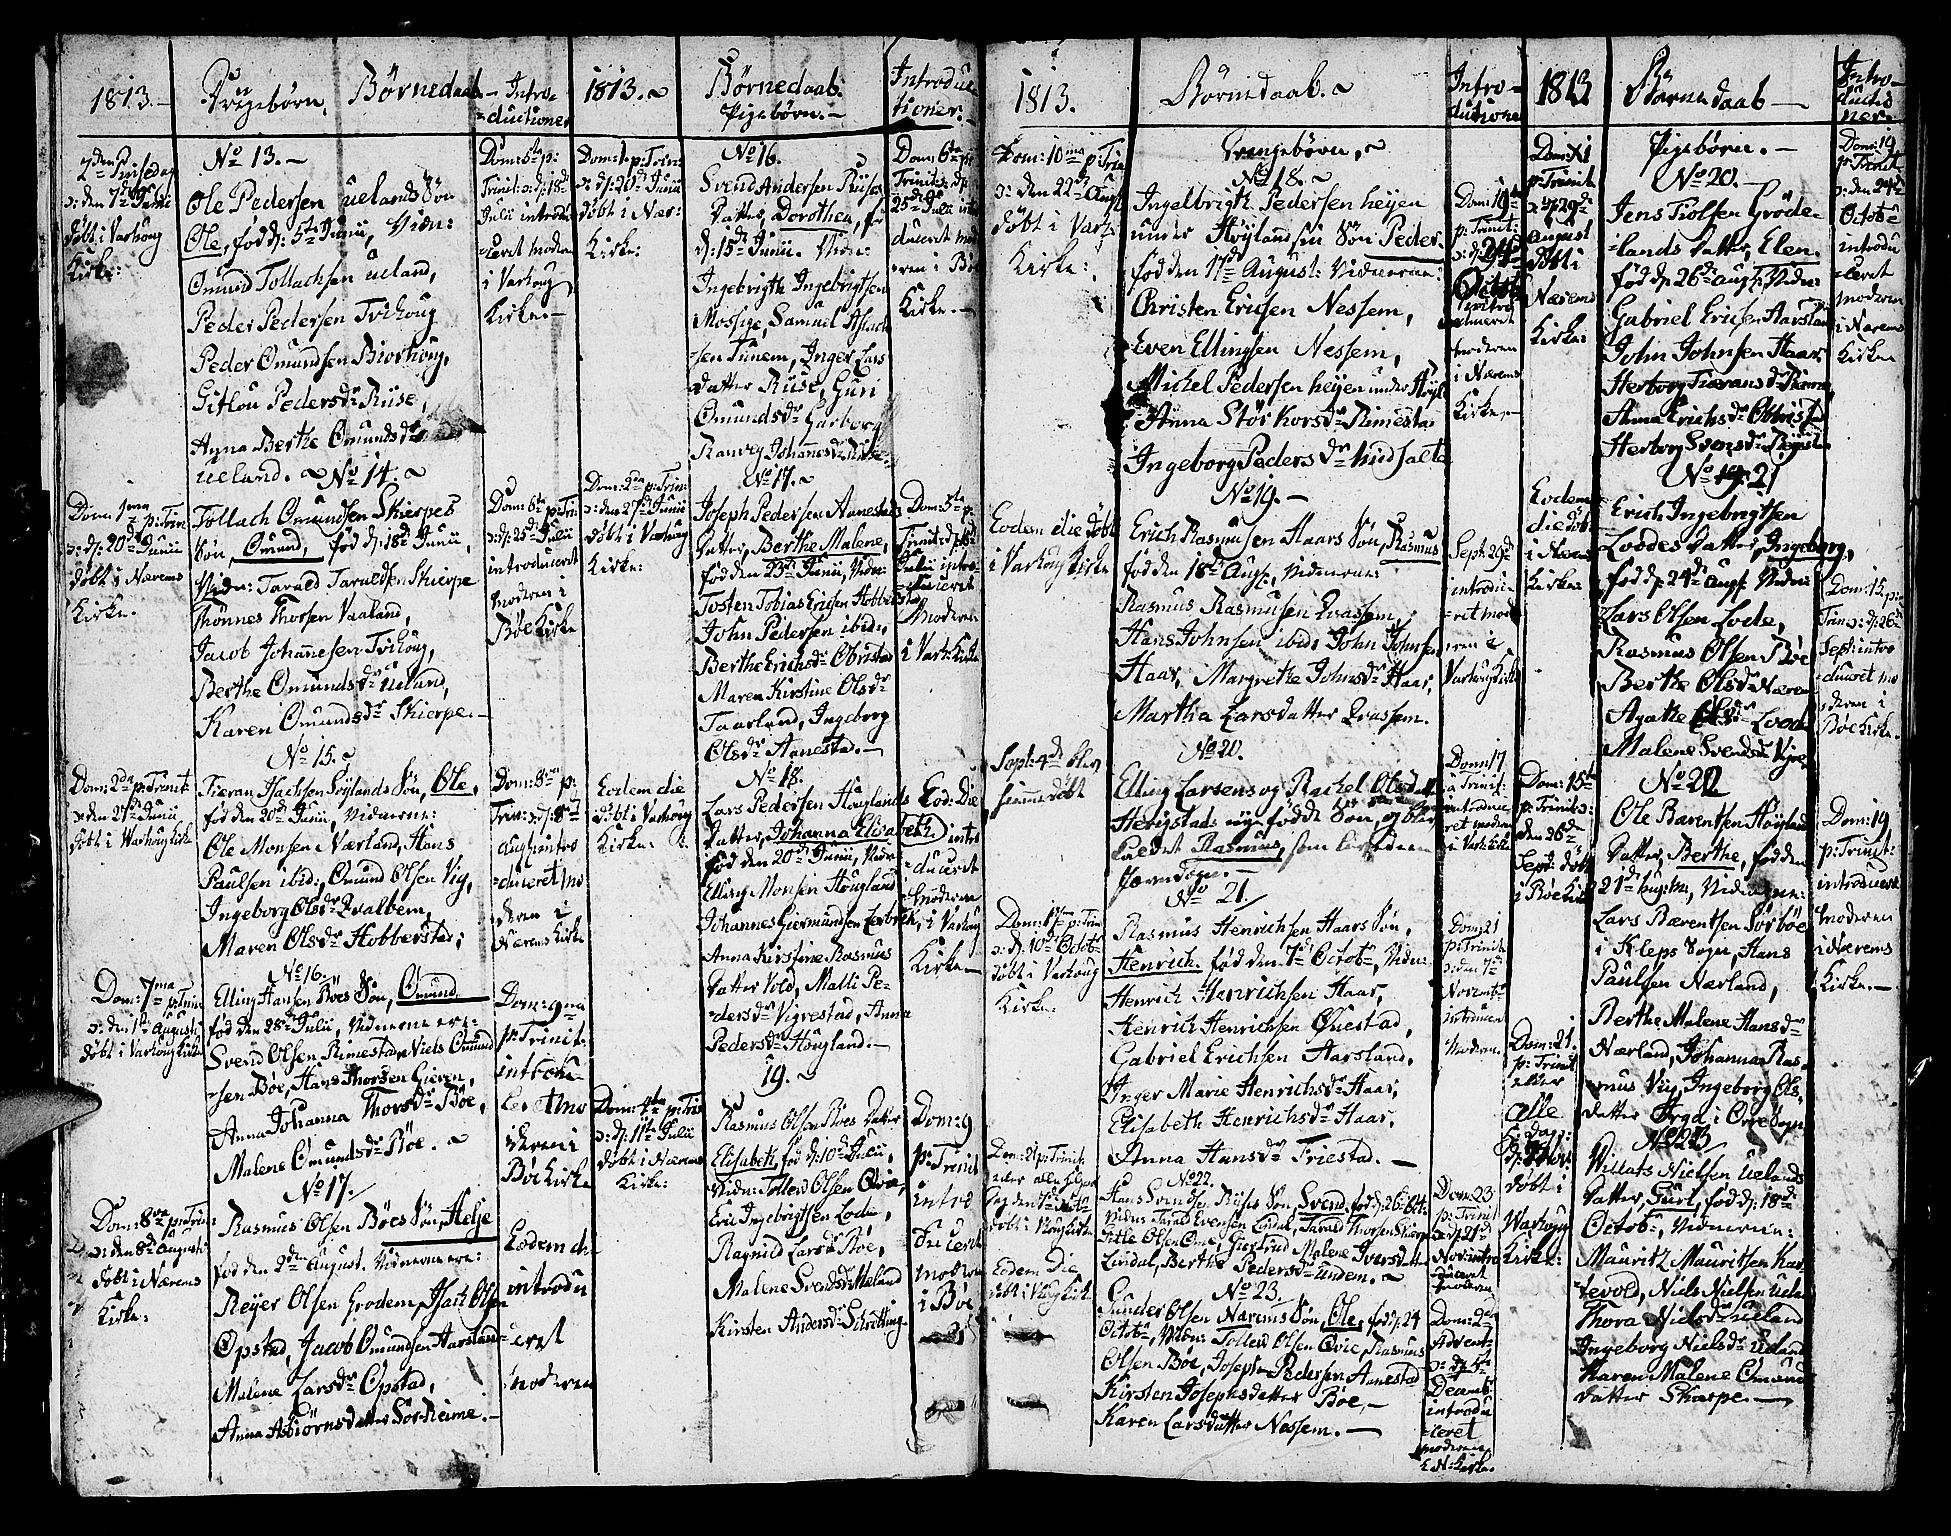 1813. —
Drengebørn. Børnedaab. —
Intro-
=ductioner
2den Pinsedag
ɔ: den 7de Junii
døbt i Varhoug
Kirke:
No 13. —
Ole Pedersen uelands Søn
Ole, född d: 5te Junii, Vidn:
Omund Tollachsen ueland,
Peder Pedersen Tvihoug
Peder Omundsen Biorhoug,
Gitlou Pedersdr Riise,
Anna Berthe Omundsdr
ueland. ~
Dom: 5ta p:
Trinit: ɔ: d: 18de
Julii introdu
=ceret moderen
i Varhoug
Kirke. —
No 14. ~
Dom: 1ma p: Trin:
ɔ: d: 20de Junii
døbt i Nærems
Kirke.
Tollach Omundsen Skierpes
Søn, Omund, fød d: 18de Junii,
Vidn: Tarald Taraldsen Skierpe
Thönnes Thorsen Vaaland,
Jacob Johannesen Tvihoug,
Berthe Omundsdr Ueland,
Karen Omundsdr Skierpe. —
Dom: 6ta p: Tri:
ɔ: d: 25de Julii
introduceret
moderen i
Bøe Kirke
No 15. ~
Dom: 2da p: Trinit:
ɔ: den 27de Junii
døbt i Varhoug Kirke
Søylands Søn, Ole,
fød den 20de Junii, Vidnerne:
Ole Monsen Nærland, Hans
Paulsen ibid:, Omund Olsen Vig,
Ingeborg Olsdr Qvalbem,
Maren Olsdr Hobberstad;
Dom: 8va p:
Trin: ɔ: d: 8de
Aug: intro
=duceret mo
=deren i
Nærems Kirke
No 16.
Dom: 7ma p: Trin:
ɔ: den 1te Augusti
døbt i Varhoug Kirke
Elling Hansen Böes Søn, Omund
fød den 28de Julii, Vidnerne ere:
Svend Olsen Rimestad, Niels Omund
=sen Bøe, Hans Thorsen Gieren,
Anna Johanna Thorsdr Bøe,
Malene Omundsdr Bøe. ~
Dom: 9na
p: Trinit:
introdu-
ceret mo
=deren i
Bøe Kirke
No 17. ~
Dom: 8va p: Trin:
ɔ: den 8de Augusti
døbt i Nærems
Kirke:
Rasmus Olsen Böes Søn, Helje
fød den 2den August. Vidnerne ere:
Reyer Olsen Grodem, Isach Olsen
Opstad, Jacob Omundsen Harsland
Malene Larsdr Opstad,
Anna Asbiörnsdatter Sör Reime. —
Eodem die
introdu
=ceret
moderen
1813. ~
Børnedaab.
Pigebørn. —
Introduc
tioner. —
Dom: 1. p: Trin:
ɔ: d: 20de Junii
döbt i Nær:
Kirke:
No 16.
Svend Andersen Riises
Datter, Dorothea, fød
d: 15de Junii. Vidne:
Ingebrigth Ingebrigtsen
Mossige, Samuel Aslach
=sen Tunem, Inger Lars
datter Riise, Guri
Omundsdr Garborg
Ranvey Johannesdr Riise
Dom: 6ta p:
Trinit: ɔ: d:
25de Julii intro
duceret mod
=eren i Bøe
Kirke. —
No 17. ~
Dom: 2da p: Trin:
ɔ: d: 27de Junii
døbt i Varhoug
Kirke:
Joseph Pedersen Aanestad
Datter, Berthe Malene,
fød den 23de Junii, Vidne:
Tosten Tobias Ericsen Hobberstad
John Pedersen ibid:,
Berthe Erichsdr Obrestad
Maren Kirstine Olsdr
Taarland, Ingeborg
Olsdr Aanestad. —
Dom: 5ta p:
Trinit: ɔ: d: 18de
Julii intro
=duceret
Moderen
i Varh: Kirke
No 18.
Eodem die
døbt i Varhoug
Kirke:
Lars Pedersen Höuglands
Datter, Johanna Elisabeth
fød den 20de Junii, Vidn:
Elling Monsen Höugland
Johannes Giermundsen Lerbrek,
Anna Kirstine Rasmus
datter Vold, Malli Pe-
=dersdr Vigrestad, Anna
Pedersdr Höugland. —
Eod: Die
intro
=duceret
moderen
i Varhoug
Kirke —
19. ~
Dom: 4ta p: Tri:
ɔ: d: 11te Julii
døbt i Nærems
Kirke:
Rasmus Olsen Böes datter
Elisabeth, fød d: 10de Julii,
Vidn: Tollew Olsen Qvie,
Eric Ingebrigtsen Lode,
Ragnild Larsdr Bøe,
Malene Svendsdr Ueland
Kirsten Andersdr Skretting
Dom: 9
p: Trinit
intro
duceret
moderen
i Bøe
1813.
Børnedaab. ~
Intro-
ductione
Drengebørn. ~
Dom: 10ma p: Trin:
ɔ: den 22de Aug:
døbt i Varh:
Kirke:
No 18. ~
Ingelbrigth Pedersen heyen
under Höylands Søn Peder
fød den 17de August: Vidnerne:
Christen Ericsen Nessem,
Even Ellingsen Nessem,
Mickel Pedersen heyen under Höyl
Anna Störkorsdr Rimestad
Ingeborg Pedersdr Nudsalte
Dom: 19
p: Trinit:
ɔ: d: 24de
Octob:
introd
=duceret
moderen
i Nærems
Kirke. —
No 19. —
Eodem die döbt
i Varhoug Kirke
Erich Rasmusen Haars Søn, Rasmus
fød den 18de Aug:, Vidnerne:
Rasmus Rasmusen Qvassem,
Hans Johnsen ibid: John Johnsen
Haar, Margrethe Johnsdr Haar,
Martha Larsdatter Qvassem.
Sept: 29de
introdu-
=ret mode
=ren i
Varhoug Kirke
No 20.
Sept: 4de blev
hiemmedöbt
Elling Larsens og Rachel Olsdatter
Herigstads nye födde Søn, og blev
kaldet Rasmus, som
Dom: 17
a Trinit:
introduce
ret moderen
i Varh: Kirke
No 21/
Dom: 17ma p: Trin:
ɔ: d: 10de Octob:
døbt i Varhoug
Kirke:
Rasmus Henrichsen Haars Søn,
Henrich. fød den 7de Octob:, Vidn:
Henrich Henrichsen Haar,
Henrich Henrichsen Qvestad,
Gabriel Erichsen Aarsland,
Inger Marie Henrichsdr Haar,
Elisabeth Henrichsdr Haar,
Anna Hansdr Friestad. —
Dom: 21
p: Trinit:
ɔ: den 7de
Novemb:
introducer
Moderen.
No 22.
Dom: 21 p: Trinit:
eller allehelgen
dag den 7de Nov:
døbt i
Hans Svendsen Riises Søn, Svend, fød d: 26de Oct:
Vidn: Tarald Evensen Lindal, Tarald Thorsen Skierpe
Sitle Olsen Ome, Giertrud Malene Iversdatter
Lindal, Berthe Pedersdr Undem. ~
Dom: 23
p: Trinit
ɔ: d: 21de
Nov: intro
duceret
moderen
No 23.
Eodem Die
døbt i
Gunder Olsen Narems Søn, Ole, fød d: 24
Octob:, Vidn: Tollew Olsen Qvie, Rasmus
Olsen Bøe, Joseph Pedersen Aanestad
Kirsten Josephsdatter Bøe, —
Karen Larsdatter Nessem. —
Dom: 2da
Advent:
ɔ: d: 5te
Decemb:
introdu
=ceret
moderen
i N: Kirke.
1813
Børnedaab —
Intro-
ductio
ner. —
Pigebørn. —
Dom: XI
p: Trinit:
ɔ: d: 29de
August
døbt i
Nærems
Kirke:
No 20. —
Jens Tiolsen Gröde-
=lands Datter, Elen,
fød d: 26de Aug: Vidn:
Gabriel Ericsen Aarsland
John Johnsen Haar,
Anna Erichsdr Obrestad
Herborg Svensdr
Dom: 19
p: Trinit
ɔ: den 24de
Octob:
introdu
=ceret
moderen
i Nærems
Kirke
No 21
Eodem
die döbt
i Nærems
Kirke:
Erich Ingebrigtsen
Lodes Datter, Ingeborg,
fød d: 24de Aug: Vidn:
Lars Olsen Lode,
Rasmus Olsen Bøe
Berthe Olsdr Nærem
Agathe Olsdr Lode
Malene Svendsdr Vigre,
Dom: 15 p:
Trin: ɔ: d: 26de
Sept: intro
=duceret mo
=deren i
Bøe Kirke. —
No 22
Dom: 15de
p: Trinit: ɔ:
den 26de
Sept: döbt
i Bøe Kirke
Ole Barentsen Höyland
Datter, Berthe, fød den
21de Lars Bærentsen Sörböe
i Kleps Sogn, Hans
Paulsen Nærland,
Berthe Malene Hansdr
Nærland, Johanna Ras-
mus Viig, Ingeborg Ols
datter i Orre Sogn
Dom: 19
p: Trinit:
introduceret
Moderen
i Nærems
Kirke. —
No 23
Dom: 21.
p: Trinit
eller
alle
døbt i
Varhoug
Kirke:
Willats Nielsen Uelands
Datter, Guri, fød d: 18de
Octob:, Vidnerne:
Mauritz Mauritsen Kar
=tevold, Niels Nielsen Ueland
Thora Nielsdr Ueland
Ingeborg Nielsdr Ueland
Karen Malene Omund
datter Skarpe. —